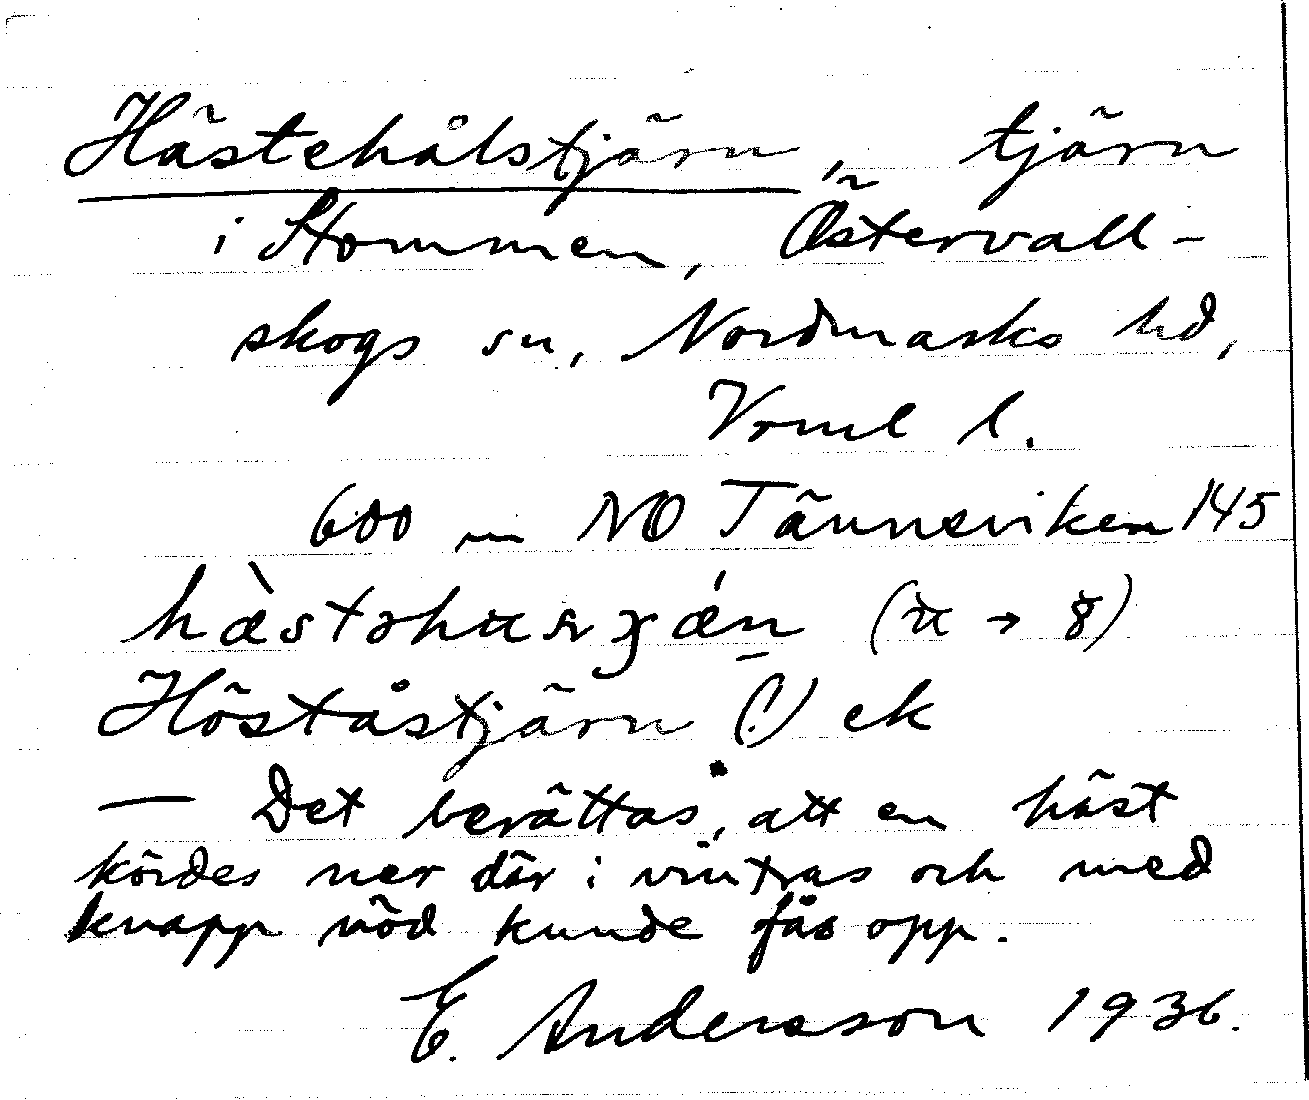 Hästehålstjärn, tjärn
i Stommen, Östervall-
skogs sn, Nordmarks hd,
Vrml l.
600 m NO Tänneviken 145
Höståstjärn (!) ek
— Det berättas, att en häst
kördes ner där i vintras och med
knapp nöd kunde fås opp.
E. Andersson 1936.